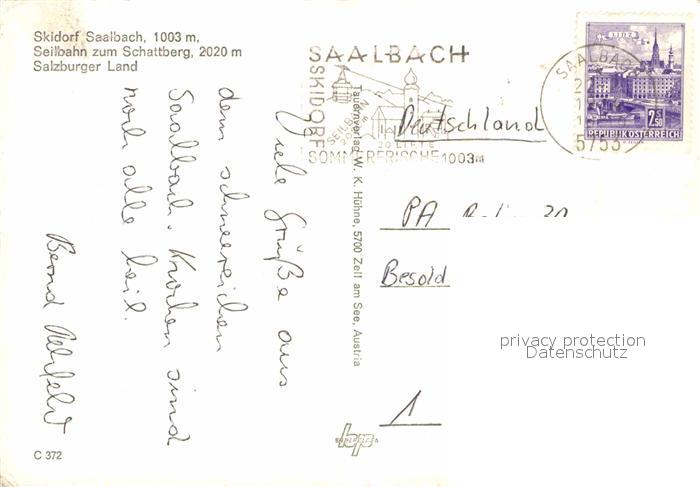 Skidorf Saalbach, 1003 m,
Seilbahn zum Schattberg, 2020 m
Salzburger Land
SAALBACH
SKIDORF
SEILBAHN
20 LIFTE
SOMMERFRISCHE 1003m
SAALBACH
5753
LINZ
2.50
REPUBLIK ÖSTERREICH
Viele Grüße aus
dem schneereichen
Saalbach. Knochen sind
noch alle heil.
Bernd
Tauernverlag W. K. Hühne, 5700 Zell am See, Austria
Deutschland
PA
Besold
1
privacy protection
Datenschutz
hp
C 372